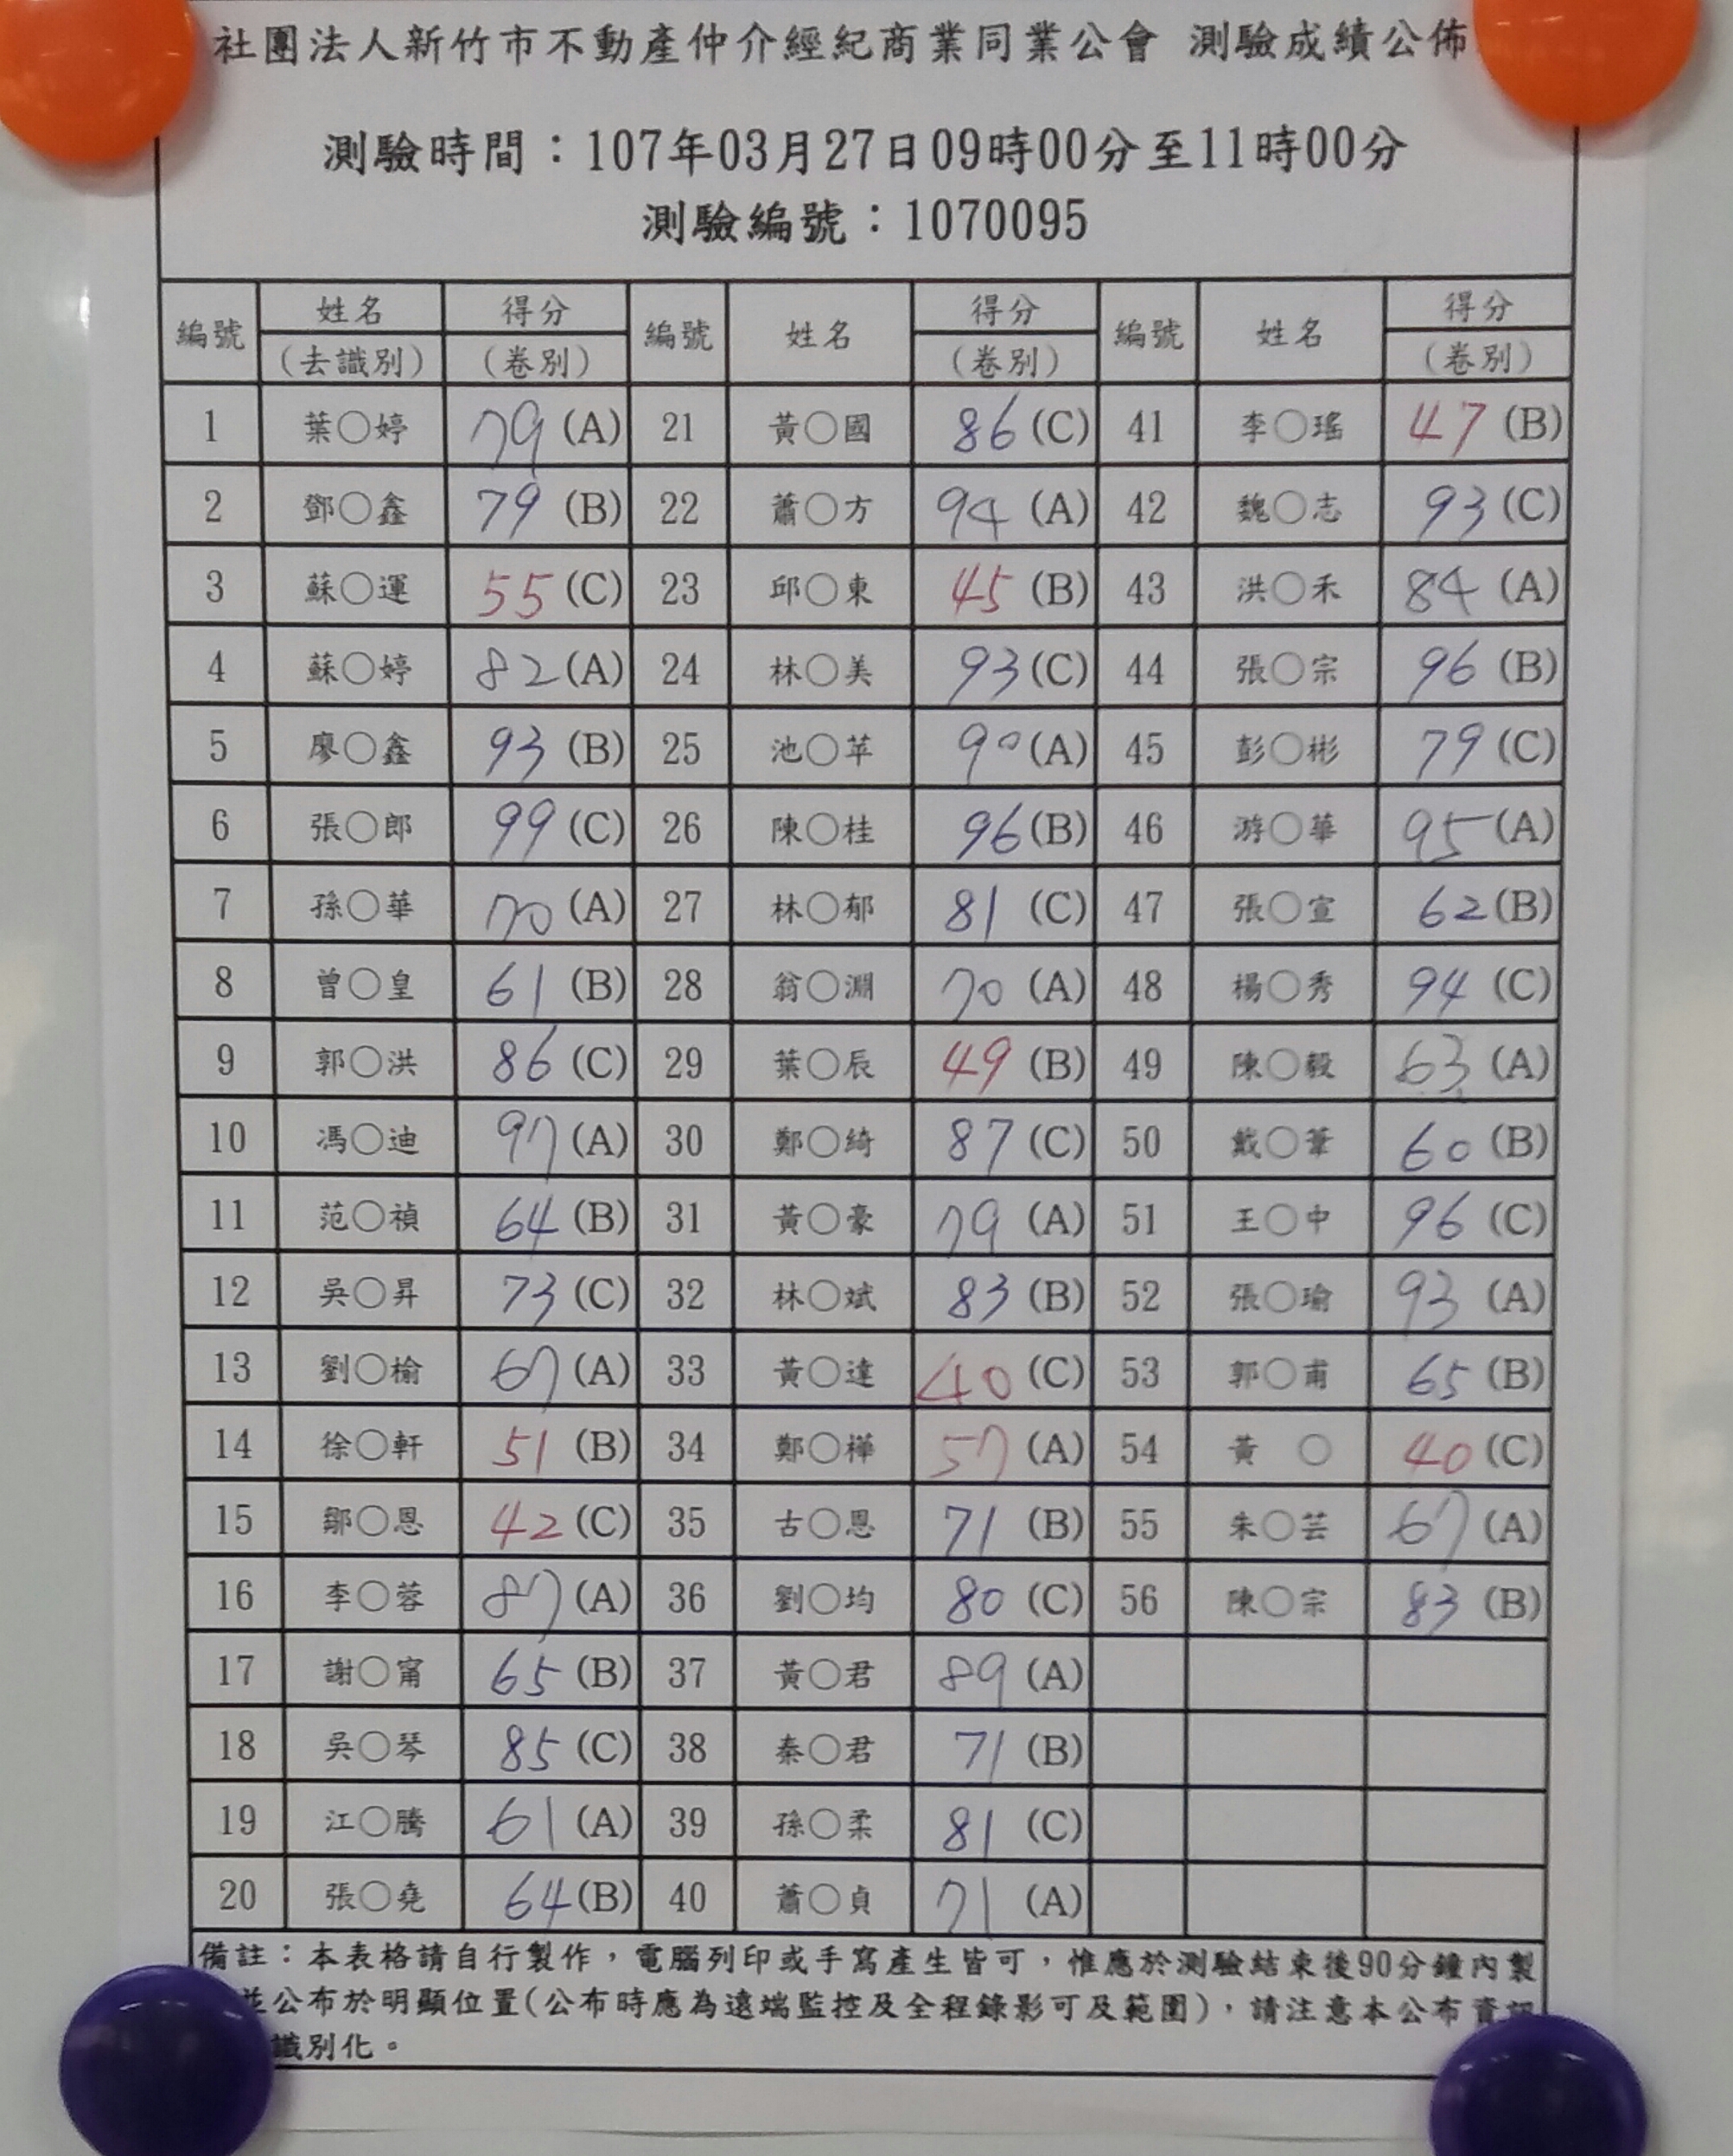 社團法人新竹市不動產仲介經紀商業同業公會 測驗成績公佈
測驗時間：107年03月27日09時00分至11時00分
測驗編號：1070095
編號 姓名 (去識別) 得分 (卷別) 編號 姓名 得分 (卷別) 編號 姓名 得分 (卷別)
1 葉○婷 79 (A) 21 黃○國 86 (C) 41 李○瑤 47 (B)
2 鄧○鑫 79 (B) 22 蕭○方 94 (A) 42 魏○志 93 (C)
3 蘇○運 55 (C) 23 邱○東 45 (B) 43 洪○禾 84 (A)
4 蘇○婷 82 (A) 24 林○美 93 (C) 44 張○宗 96 (B)
5 廖○鑫 93 (B) 25 池○苹 90 (A) 45 彭○彬 79 (C)
6 張○郎 99 (C) 26 陳○桂 96 (B) 46 游○華 95 (A)
7 孫○華 70 (A) 27 林○郁 81 (C) 47 張○宣 62 (B)
8 曾○皇 61 (B) 28 翁○淵 70 (A) 48 楊○秀 94 (C)
9 郭○洪 86 (C) 29 葉○辰 49 (B) 49 陳○毅 63 (A)
10 馮○迪 97 (A) 30 鄭○綺 87 (C) 50 戴○葦 60 (B)
11 范○禎 64 (B) 31 黃○豪 79 (A) 51 王○中 96 (C)
12 吳○昇 73 (C) 32 林○斌 83 (B) 52 張○瑜 93 (A)
13 劉○榆 67 (A) 33 黃○達 40 (C) 53 郭○甫 65 (B)
14 徐○軒 51 (B) 34 鄭○樺 57 (A) 54 黃 ○ 40 (C)
15 鄒○恩 42 (C) 35 古○恩 71 (B) 55 朱○芸 67 (A)
16 李○蓉 87 (A) 36 劉○均 80 (C) 56 陳○宗 83 (B)
17 謝○甯 65 (B) 37 黃○君 89 (A)
18 吳○琴 85 (C) 38 秦○君 71 (B)
19 江○騰 61 (A) 39 孫○柔 81 (C)
20 張○堯 64 (B) 40 蕭○貞 71 (A)
備註：本表格請自行製作，電腦列印或手寫產生皆可，惟應於測驗結束後90分鐘內製
並公布於明顯位置(公布時應為遠端監控及全程錄影可及範圍)，請注意本公布資訊
識別化。